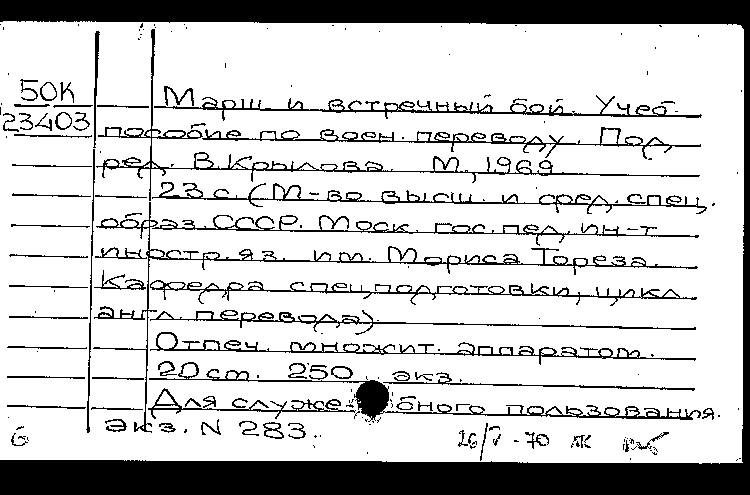 50К
23403
Марш и встречный бой. Учеб.
пособие по воен. переводу. Под
ред. В. Крылова. М., 1969
23 с. (М-во высш. и сред. спец.
образ. СССР. Моск. гос. пед. ин-т
иностр. яз. им. Мориса Тореза.
Кафедра спецподготовки, цикл
англ. перевода)
Отпеч. множит. аппаратом.
20 см. 250 экз.
Для служебного пользования.
экз. N 283.
6
26/V-70 ЛК